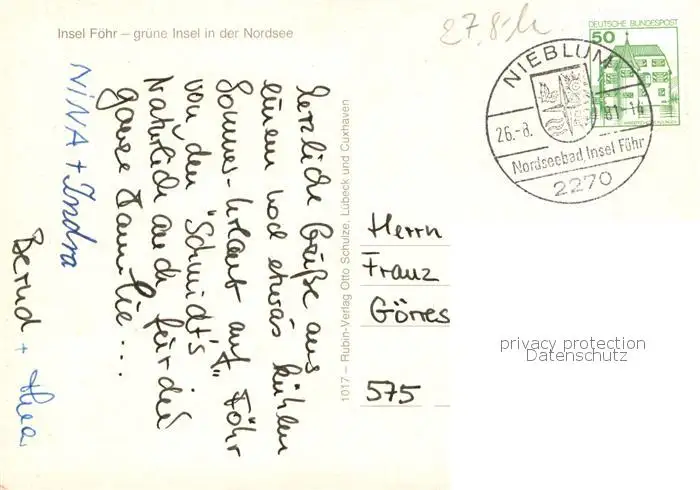 Insel Föhr – grüne Insel in der Nordsee
27.8.
DEUTSCHE BUNDESPOST
50
NIEBLUM
26.-8. 81-14
Nordseebad Insel Föhr
2270
herzliche Grüße aus
einem noch etwas kühlen
Sommer-Urlaub auf Föhr
von den "Schmidt's"
Natürlich auch für die
ganze Familie ...
NINA + Indra
Bernd + Thea
1017 – Rubin-Verlag Otto Schulze, Lübeck und Cuxhaven
Herrn
Franz
Görres
575
privacy protection
Datenschutz